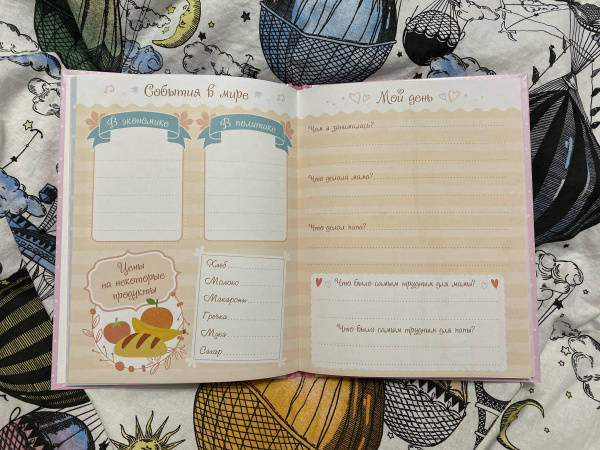 События в мире
В экономике
В политике
Цены
на некоторые
продукты
Хлеб
Молоко
Макароны
Гречка
Мука
Сахар
Мой день
Чем я занималась?
Что делала мама?
Что делал папа?
Что было самым трудным для мамы?
Что было самым трудным для папы?